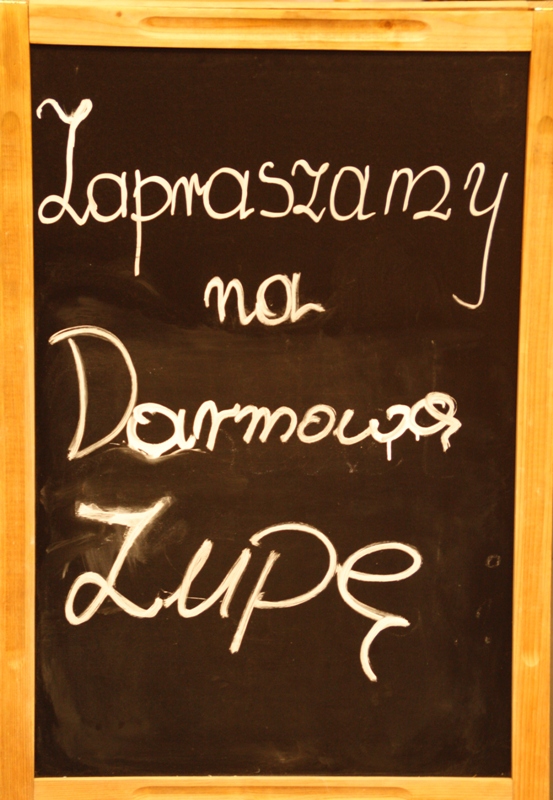 Zapraszamy
na
Darmową
Zupę